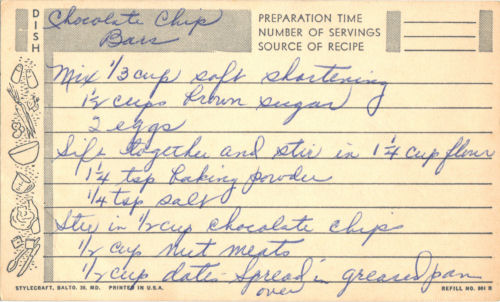 DISH
Chocolate Chip
Bars
PREPARATION TIME
NUMBER OF SERVINGS
SOURCE OF RECIPE
Mix 1/3 cup soft shortening
1 1/2 cups brown sugar
2 eggs
Sift together and stir in 1 1/4 cup flour
1 1/4 tsp baking powder
1/4 tsp salt
Stir in 1/2 cup chocolate chips
1/2 cup nut meats
1/2 cup dates - Spread in greased pan
over
STYLECRAFT, BALTO. 30, MD. PRINTED IN U.S.A. REFILL NO. 001 R